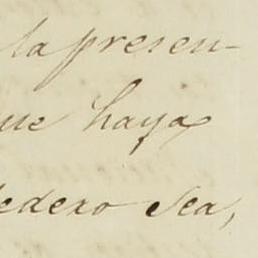 la presen-
ue haya
edero sea,